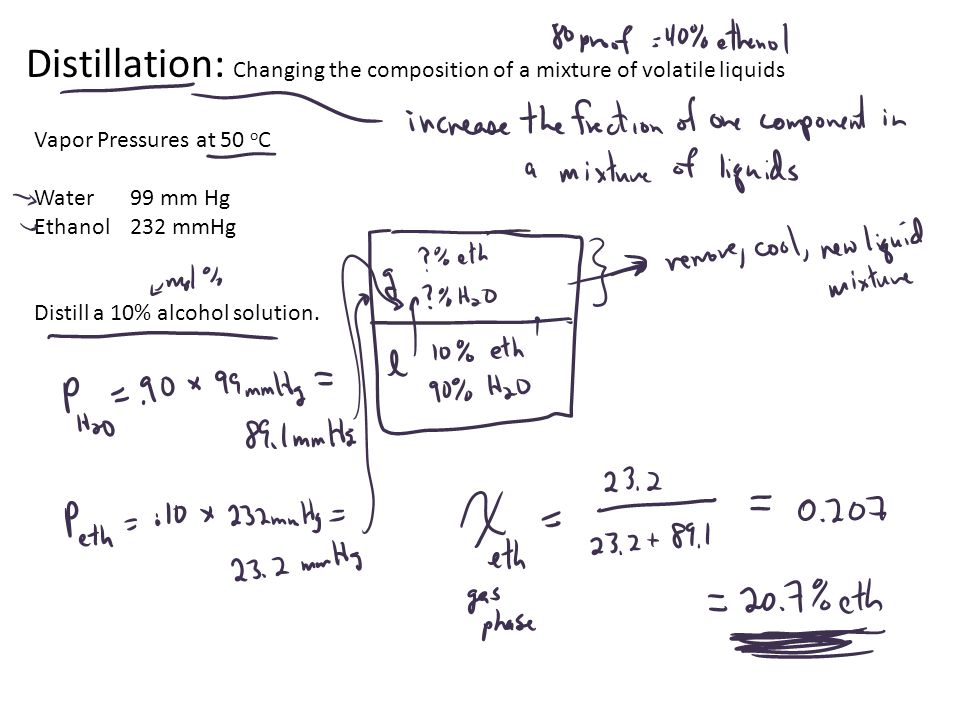 80 proof = 40% ethenol
Distillation: Changing the composition of a mixture of volatile liquids
increase the frection of one component in
a mixture of liquids
Vapor Pressures at 50 °C
Water 99 mm Hg
Ethanol 232 mmHg
mol %
Distill a 10% alcohol solution.
g
?% eth
?% H2O
l
10% eth
90% H2O
remove, cool, new liquid
mixture
P H2O = .90 x 99 mmHg =
89.1 mmHg
P eth = .10 x 232 mmHg =
23.2 mmHg
X eth gas phase = 23.2 / 23.2 + 89.1 = 0.207
= 20.7% eth